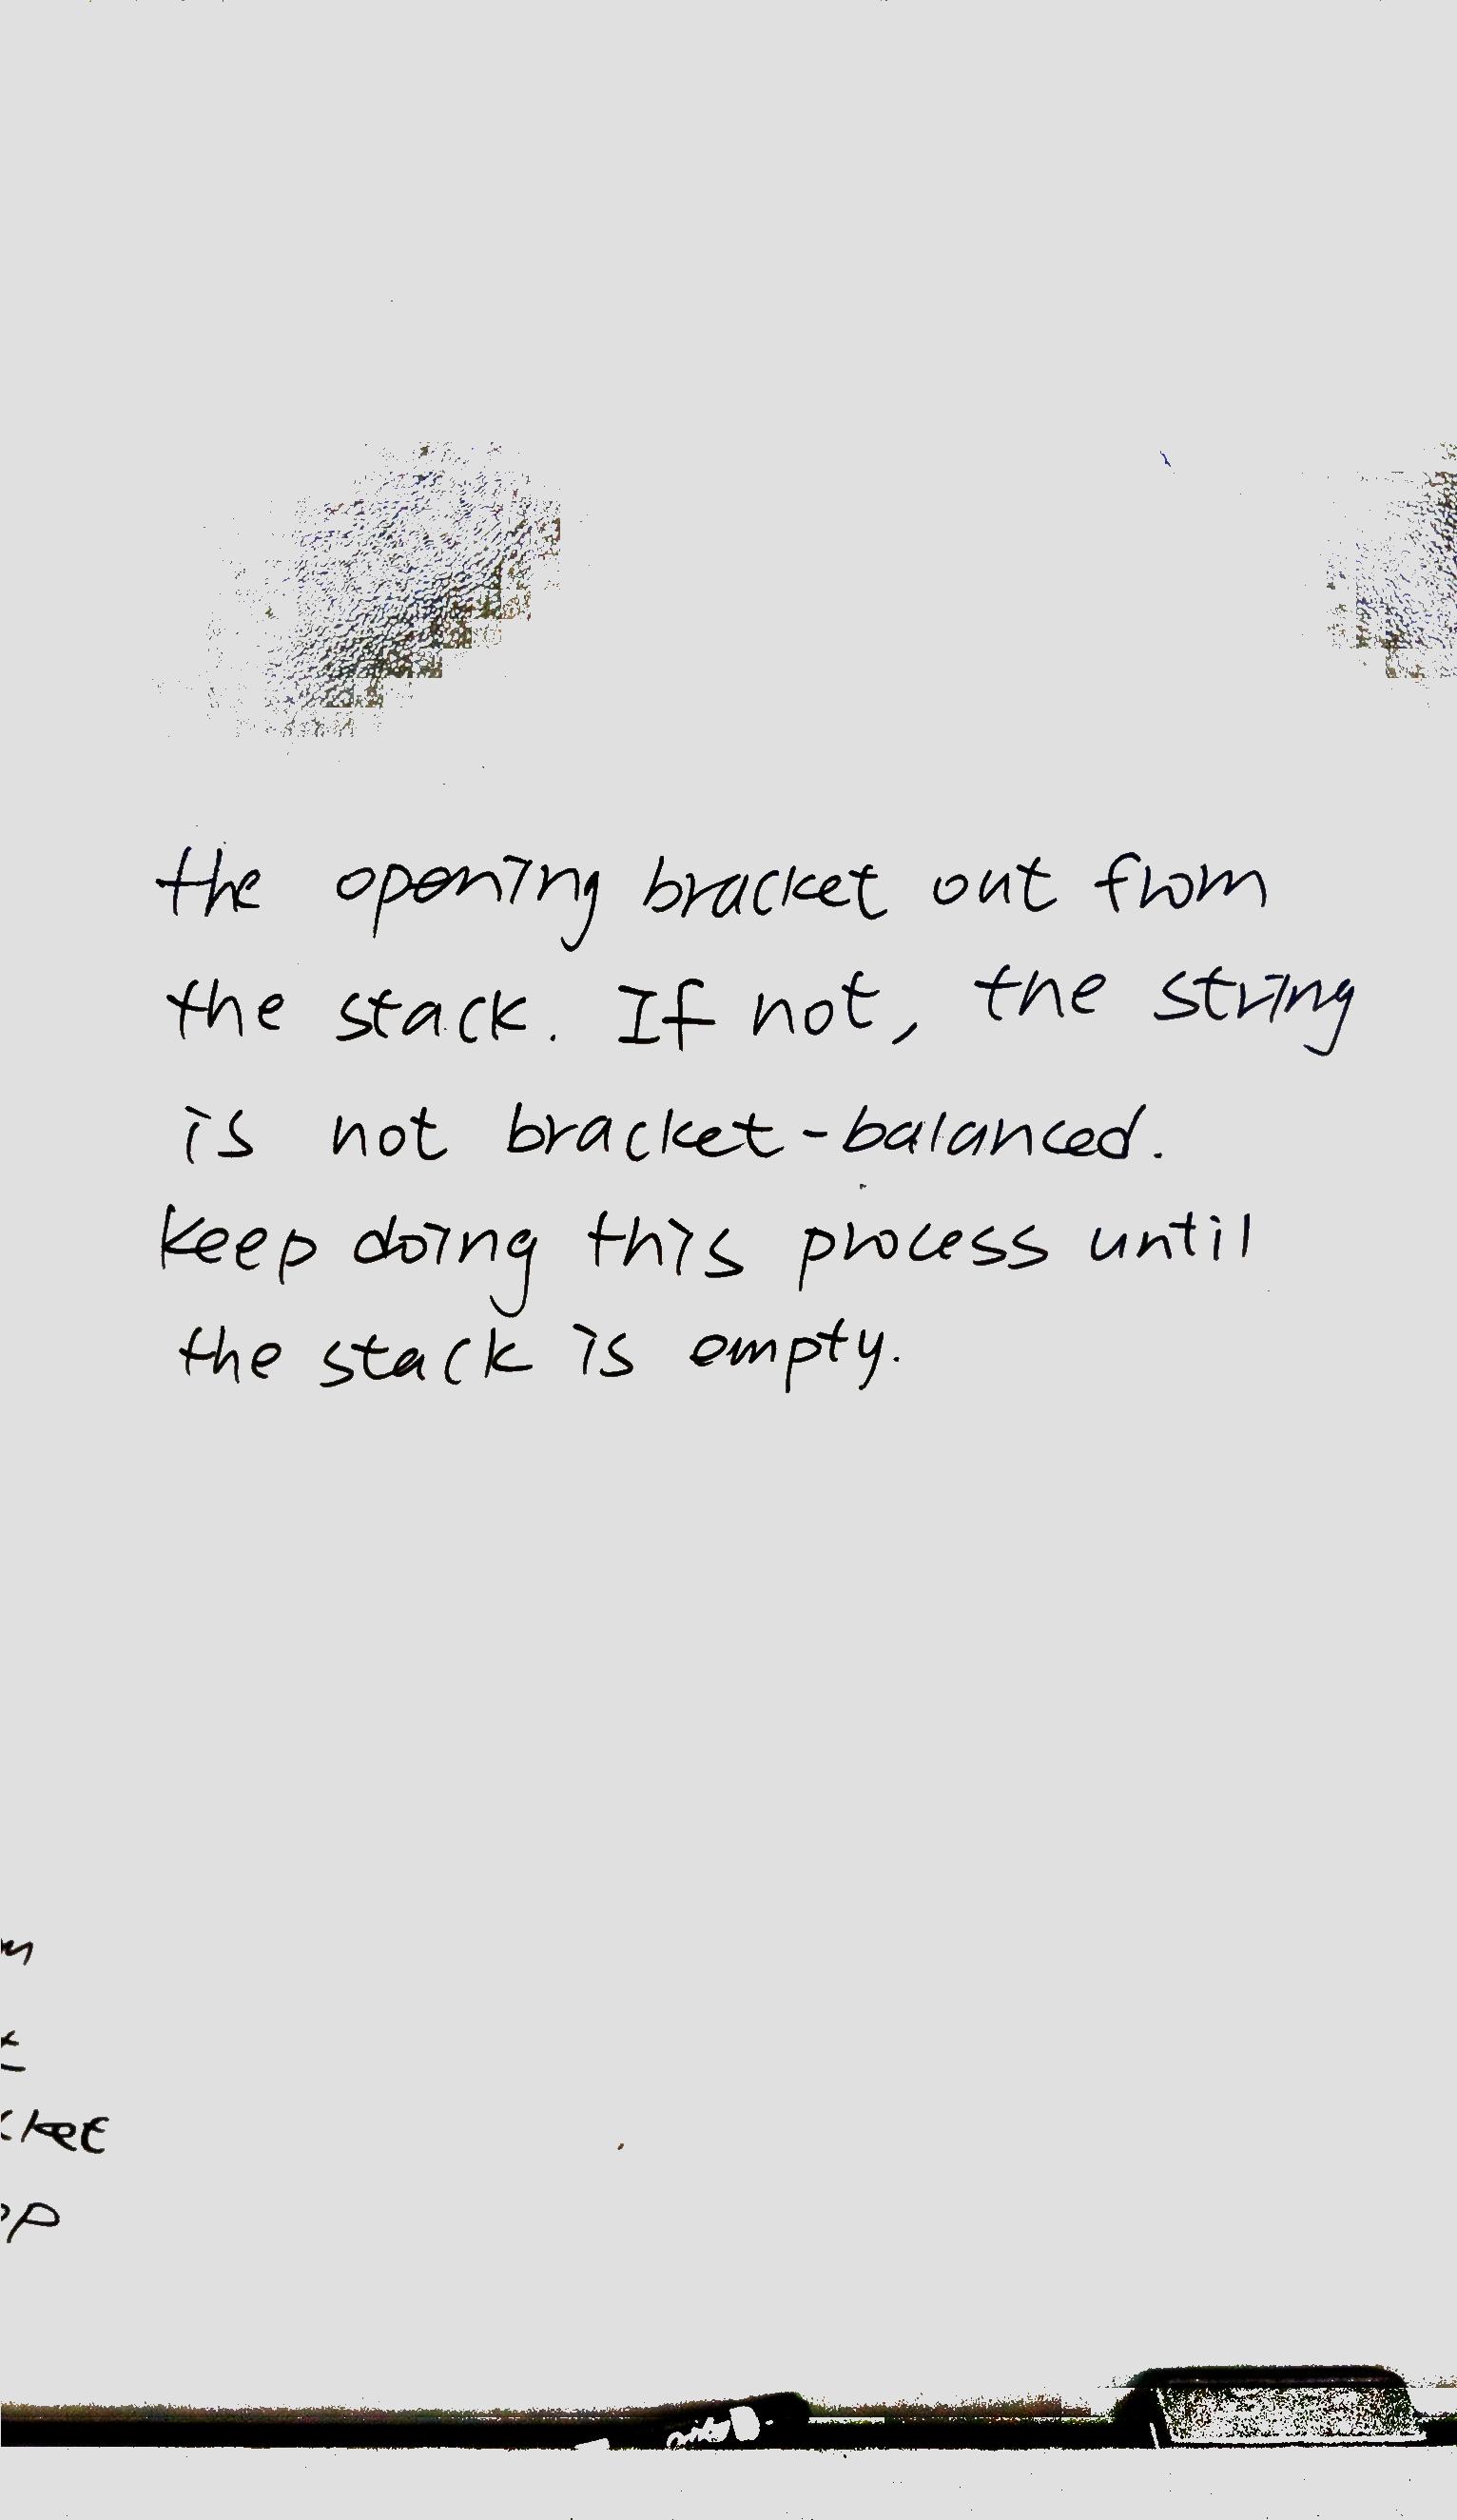 the opening bracket out from
the stack. If not, the string
is not bracket-balanced.
keep doing this process until
the stack is empty.